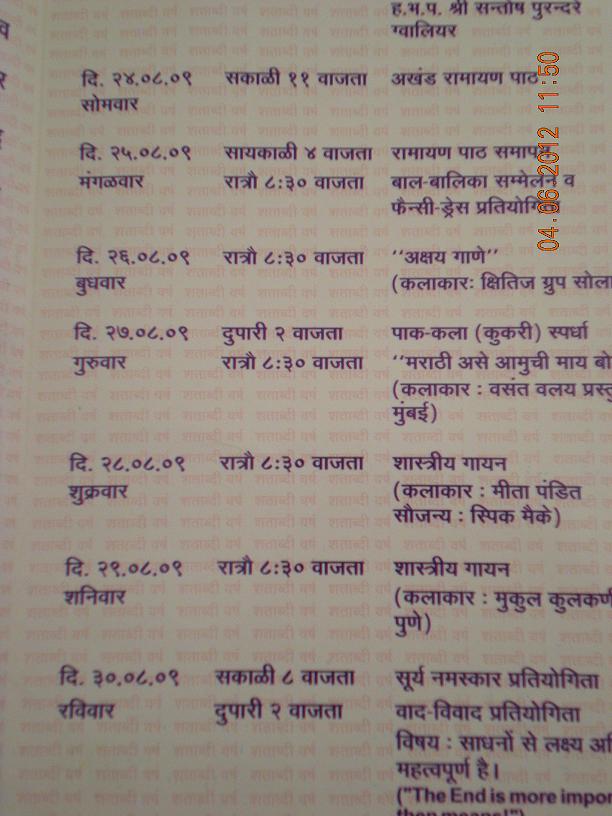 ह.भ.प. श्री सन्तोष पुरन्दरे
ग्वालियर
दि. २४.०८.०९ सकाळी ११ वाजता अखंड रामायण पाठ
सोमवार
दि. २५.०८.०९ सायकाळी ४ वाजता रामायण पाठ समापन
मंगळवार रात्रौ ८:३० वाजता बाल-बालिका सम्मेलन व
फॅन्सी-ड्रेस प्रतियोगिता
दि. २६.०८.०९ रात्रौ ८:३० वाजता ‘‘अक्षय गाणे’’
बुधवार (कलाकारः क्षितिज ग्रुप सोला
दि. २७.०८.०९ दुपारी २ वाजता पाक-कला (कुकरी) स्पर्धा
गुरुवार रात्रौ ८:३० वाजता ‘‘मराठी असे आमुची माय बो
(कलाकार : वसंत वलय प्रस्तु
मुंबई)
दि. २८.०८.०९ रात्रौ ८:३० वाजता शास्त्रीय गायन
शुक्रवार (कलाकार : मीता पंडित
सौजन्य : स्पिक मैके)
दि. २९.०८.०९ रात्रौ ८:३० वाजता शास्त्रीय गायन
शनिवार (कलाकार : मुकुल कुलकर्णी
पुणे)
दि. ३०.०८.०९ सकाळी ८ वाजता सूर्य नमस्कार प्रतियोगिता
रविवार दुपारी २ वाजता वाद-विवाद प्रतियोगिता
विषय : साधनों से लक्ष्य अि
महत्वपूर्ण है।
("The End is more impor
than means!")
04.06.2012 11:50